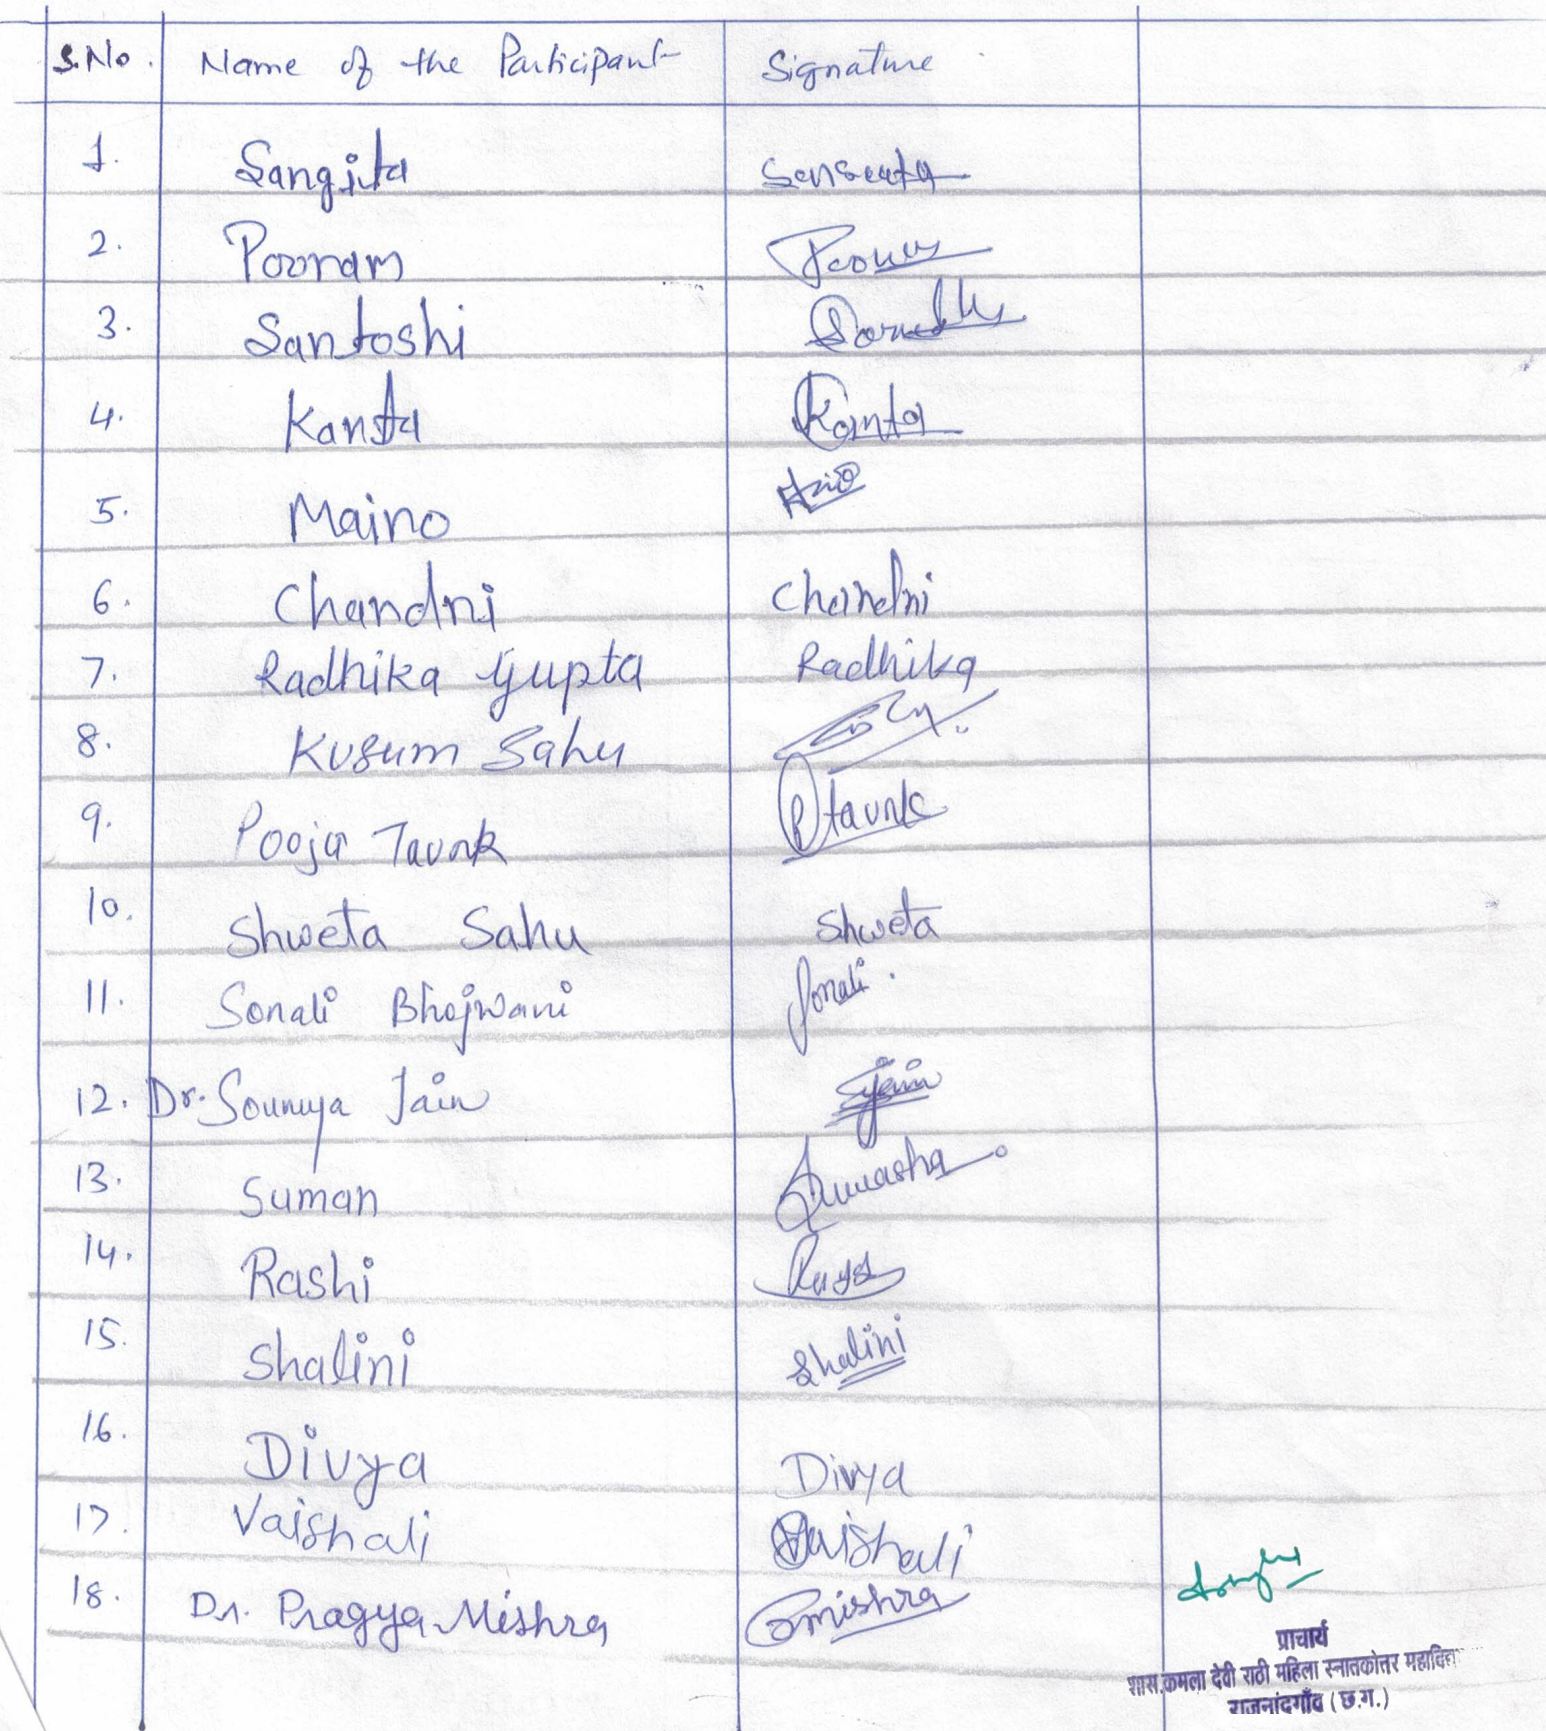 S.No. Name of the Participant Signature
1. Sangita
2. Poonam
3. Santoshi
4. Kanta Kanta
5. Maino
6. Chandni Chandni
7. Radhika Gupta Radhika
8. Kusum Sahu
9. Pooja Taunk P taunk
10. Shweta Sahu Shweta
11. Sonali Bhojwani Sonali
12. Dr. Soumya Jain SJain
13. Suman
14. Rashi
15. Shalini Shalini
16. Divya Divya
17. Vaishali Vaishali
18. Dr. Pragya Mishra Pmishra
प्राचार्य
शास.कमला देवी राठी महिला स्नातकोत्तर
राजनांदगाँव (छ.ग.)